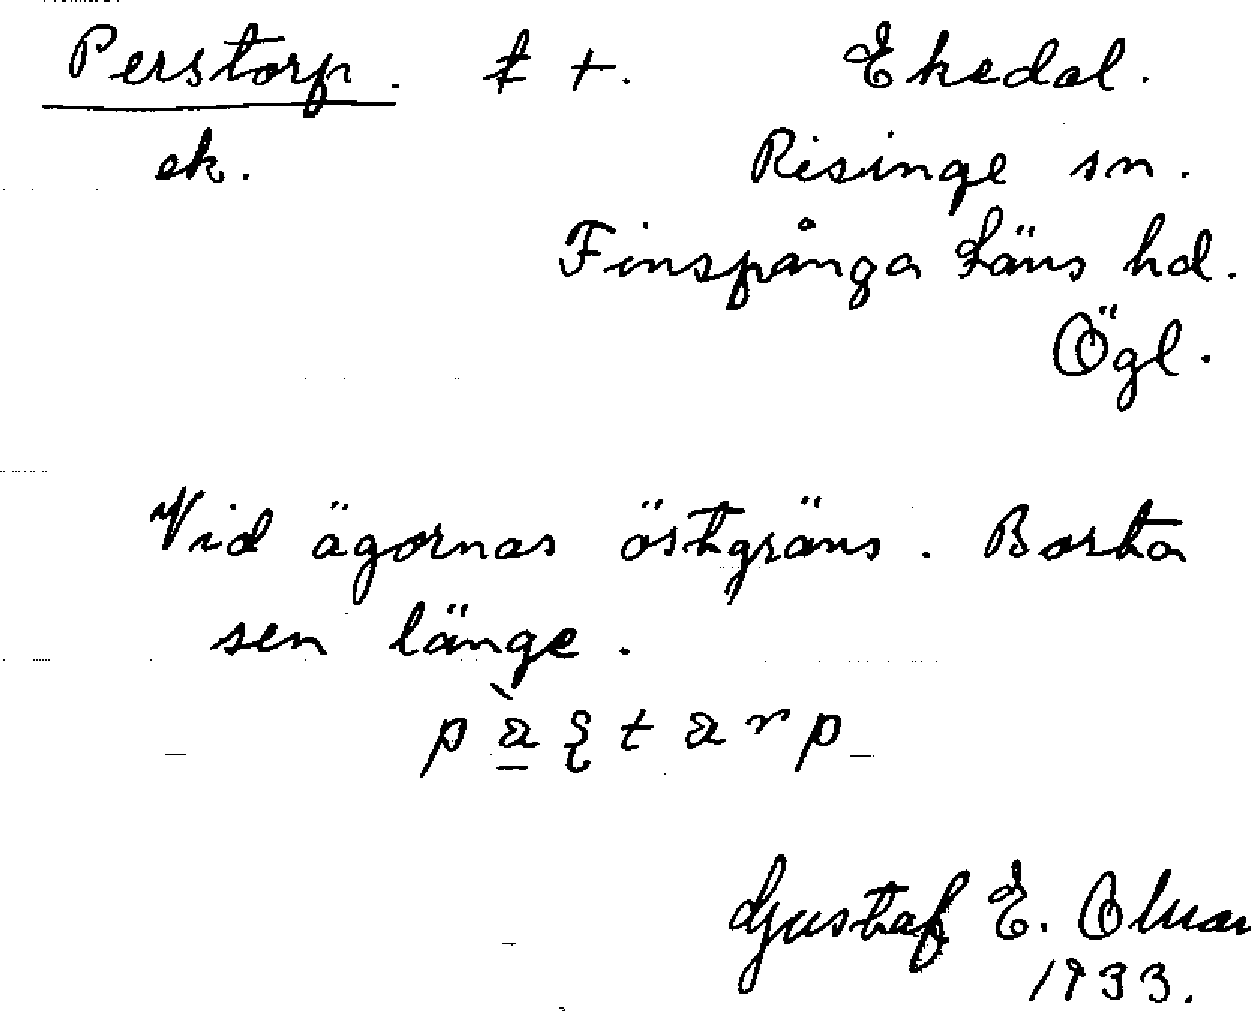 Perstorp. t +. Ekedal.
ek. Risinge sn.
Finspånga Läns hd.
Ögl.
Vid ägornas östgräns. Borta
sen länge.
Gustaf E.
1933.